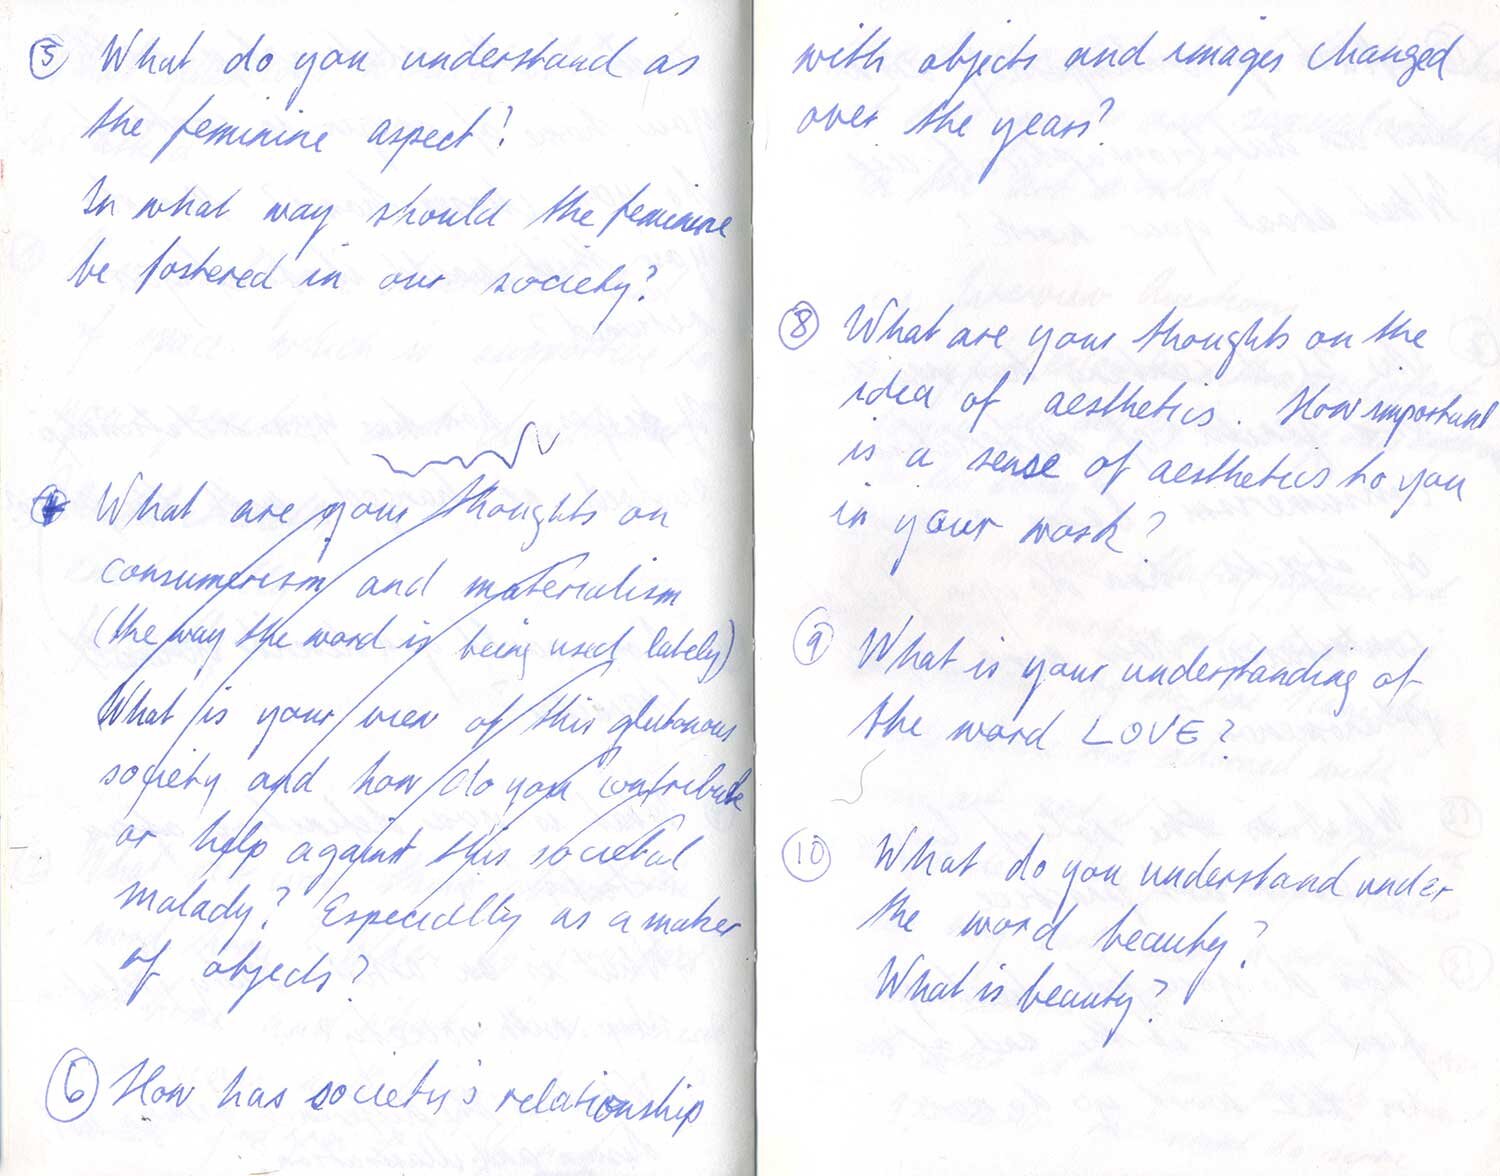 5 What do you understand as
the feminine aspect?
In what way should the feminine
be fostered in our society?
What are your thoughts on
consumerism and materialism
(the way the word is being used lately)
What is your view of this glutonous
society and how do you contribute
or help against this societal
malady? Especially as a maker
of objects?
6 How has society's relationship
with objects and images changed
over the years?
8 What are your thoughts on the
idea of aesthetics. How important
is a sense of aesthetics to you
in your work?
9 What is your understanding of
the word LOVE?
10 What do you understand under
the word beauty?
What is beauty?